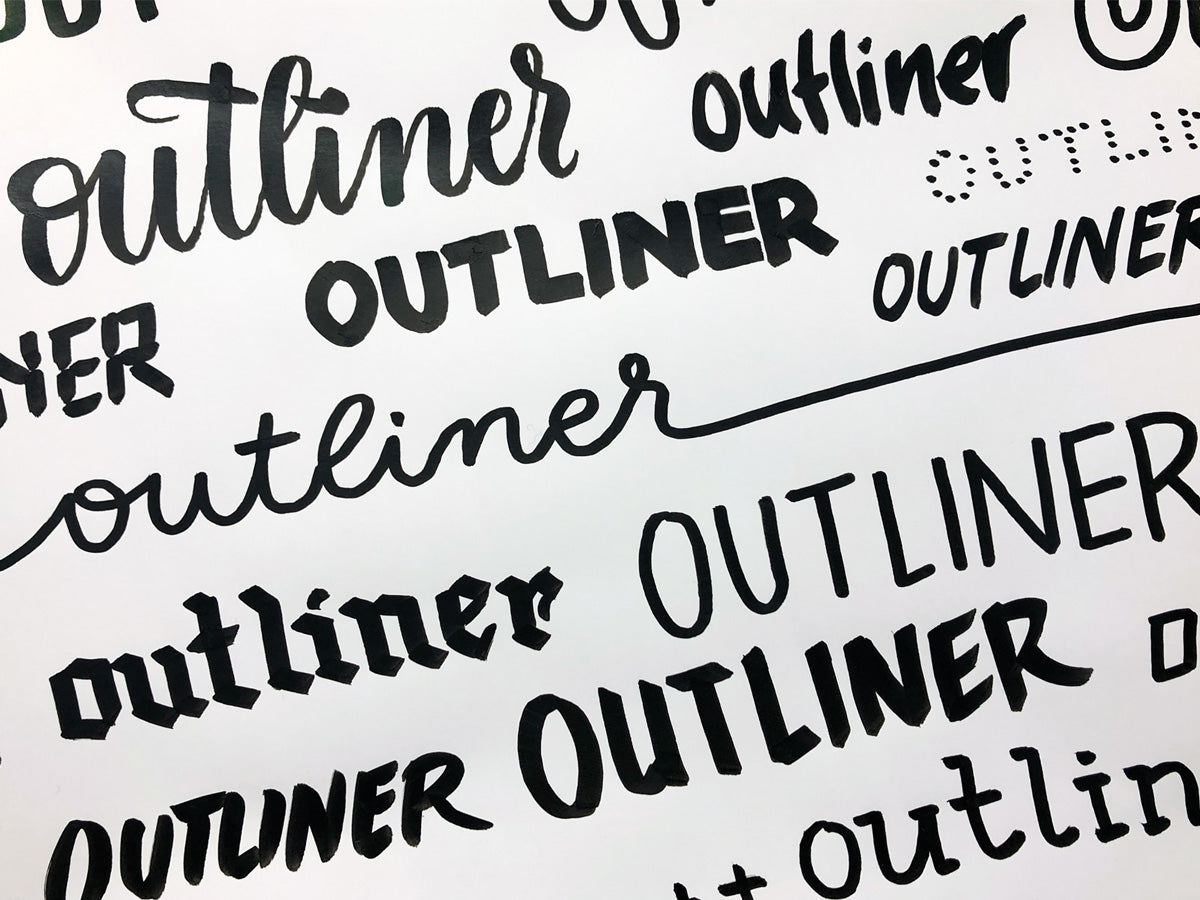 outliner
outliner
OUTLIN
OUTLINER
OUTLINER
NER
outliner
OUTLINER
outliner
OUTLINER
OUTLINER
outlin